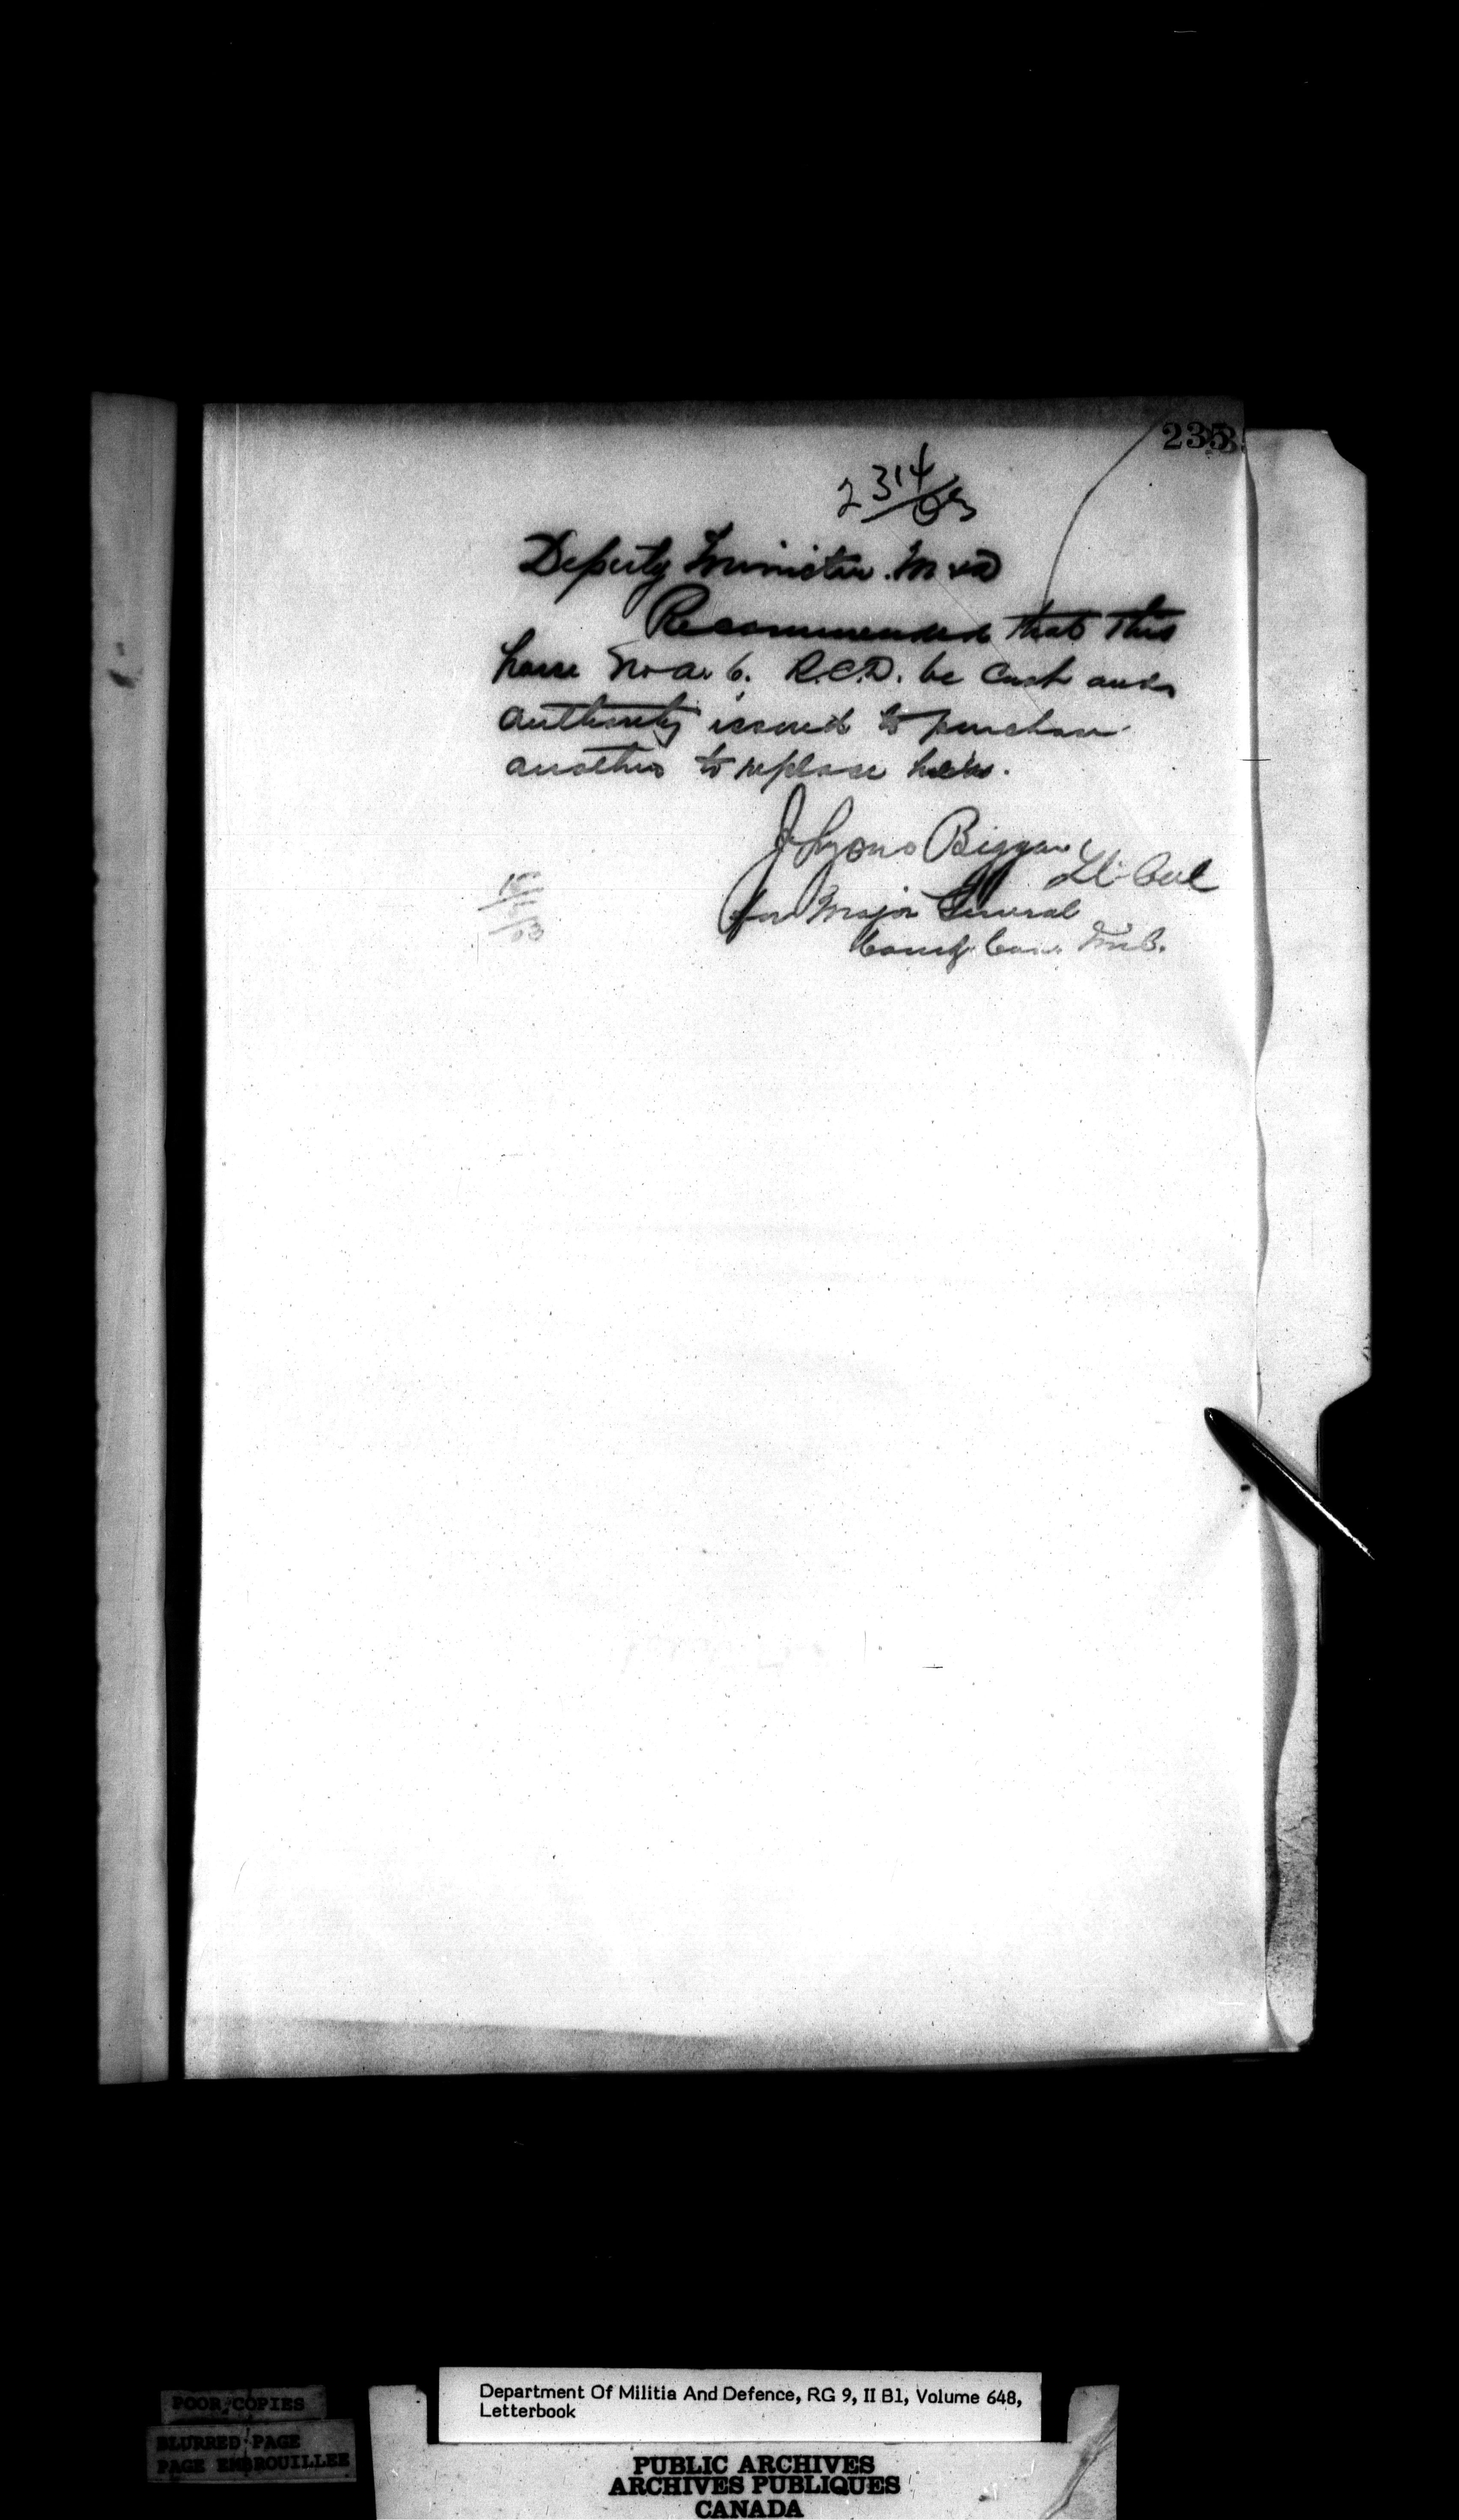 235
2314/03
Deputy Minister. M & D
Recommended that this
horse No A. 6. R.C.D. be cast and
authority issued to purchase
another to replace
J Lyons Biggar
Lt-Col
for Major General
Comdg. Can. Mil.
Department Of Militia And Defence, RG 9, II B1, Volume 648,
Letterbook
POOR COPIES
BLURRED PAGE
PAGE EMBROUILLEE
PUBLIC ARCHIVES
ARCHIVES PUBLIQUES
CANADA